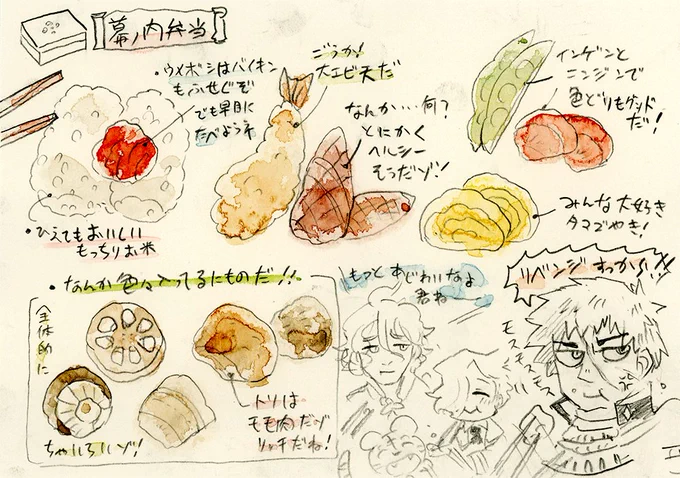 幕ノ内弁当
・ウメボシはバイキン
もふせぐぞ
でも早目に
たべようネ
ごうか!
大エビ天だ
なんか…何?
とにかく
ヘルシー
そうだゾ!!
インゲンと
ニンジンで
色どりもグッド
だ!
みんな大好き
タマゴやき!
・ひえてもおいしい
もっちりお米
・なんか色々入ってるにものだ!!
全体的に
ちゃいろいゾ!
トリは
モモ肉だゾ
リッチだね!
もっとあじわいなよ
君ね
リベンジすっから!!
モスモスモス